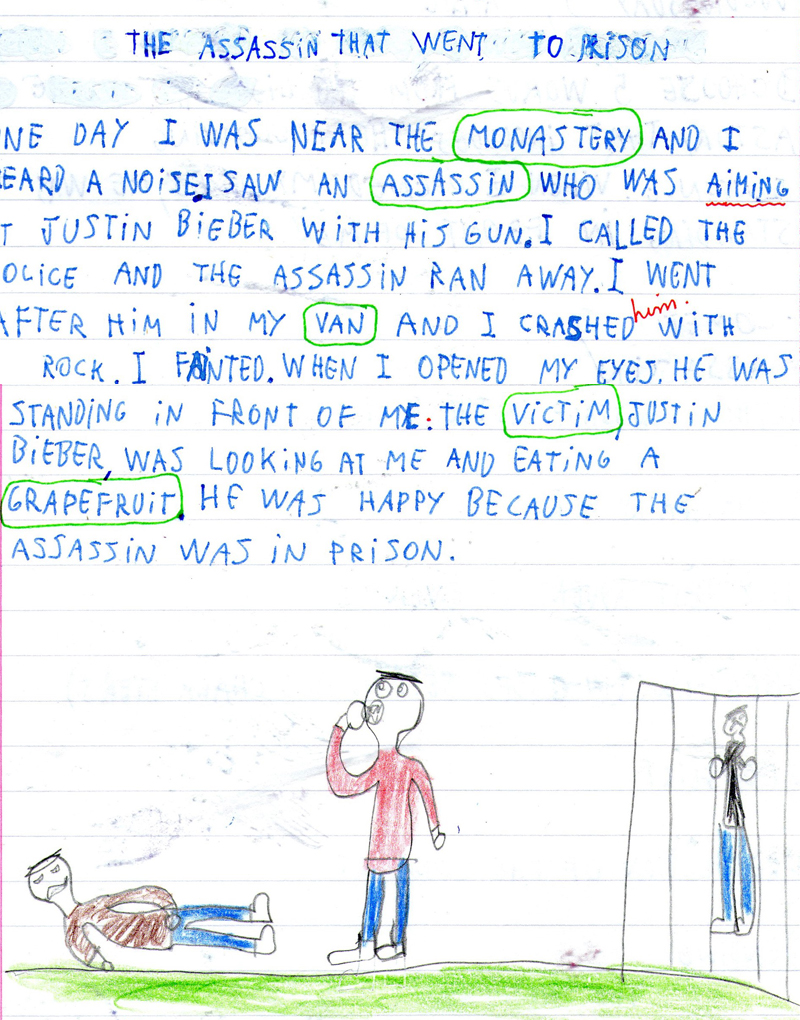 THE ASSASSiN THAT WENT TO PRISON
NE DAY I WAS NEAR THE MONASTERY AND I
EARD A NOiSE.I SAW AN ASSASSiN WHO WAS AiMiNG
T JUSTiN BiEBER WiTH HiS GUN. I CALLED THE
OLiCE AND THE ASSASSiN RAN AWAY. I WENT
AFTER HiM iN MY VAN AND I CRASHED him. WiTH
ROCK. I FAiNTED. WHEN I OPENED MY EYES, HE WAS
STANDiNG iN FRONT OF ME: THE ViCTiM, JUSTiN
BiEBER, WAS LOOKiNG AT ME AND EATiNG A
GRAPEFRUiT. HE WAS HAPPY BECAUSE THE
ASSASSiN WAS iN PRiSON.